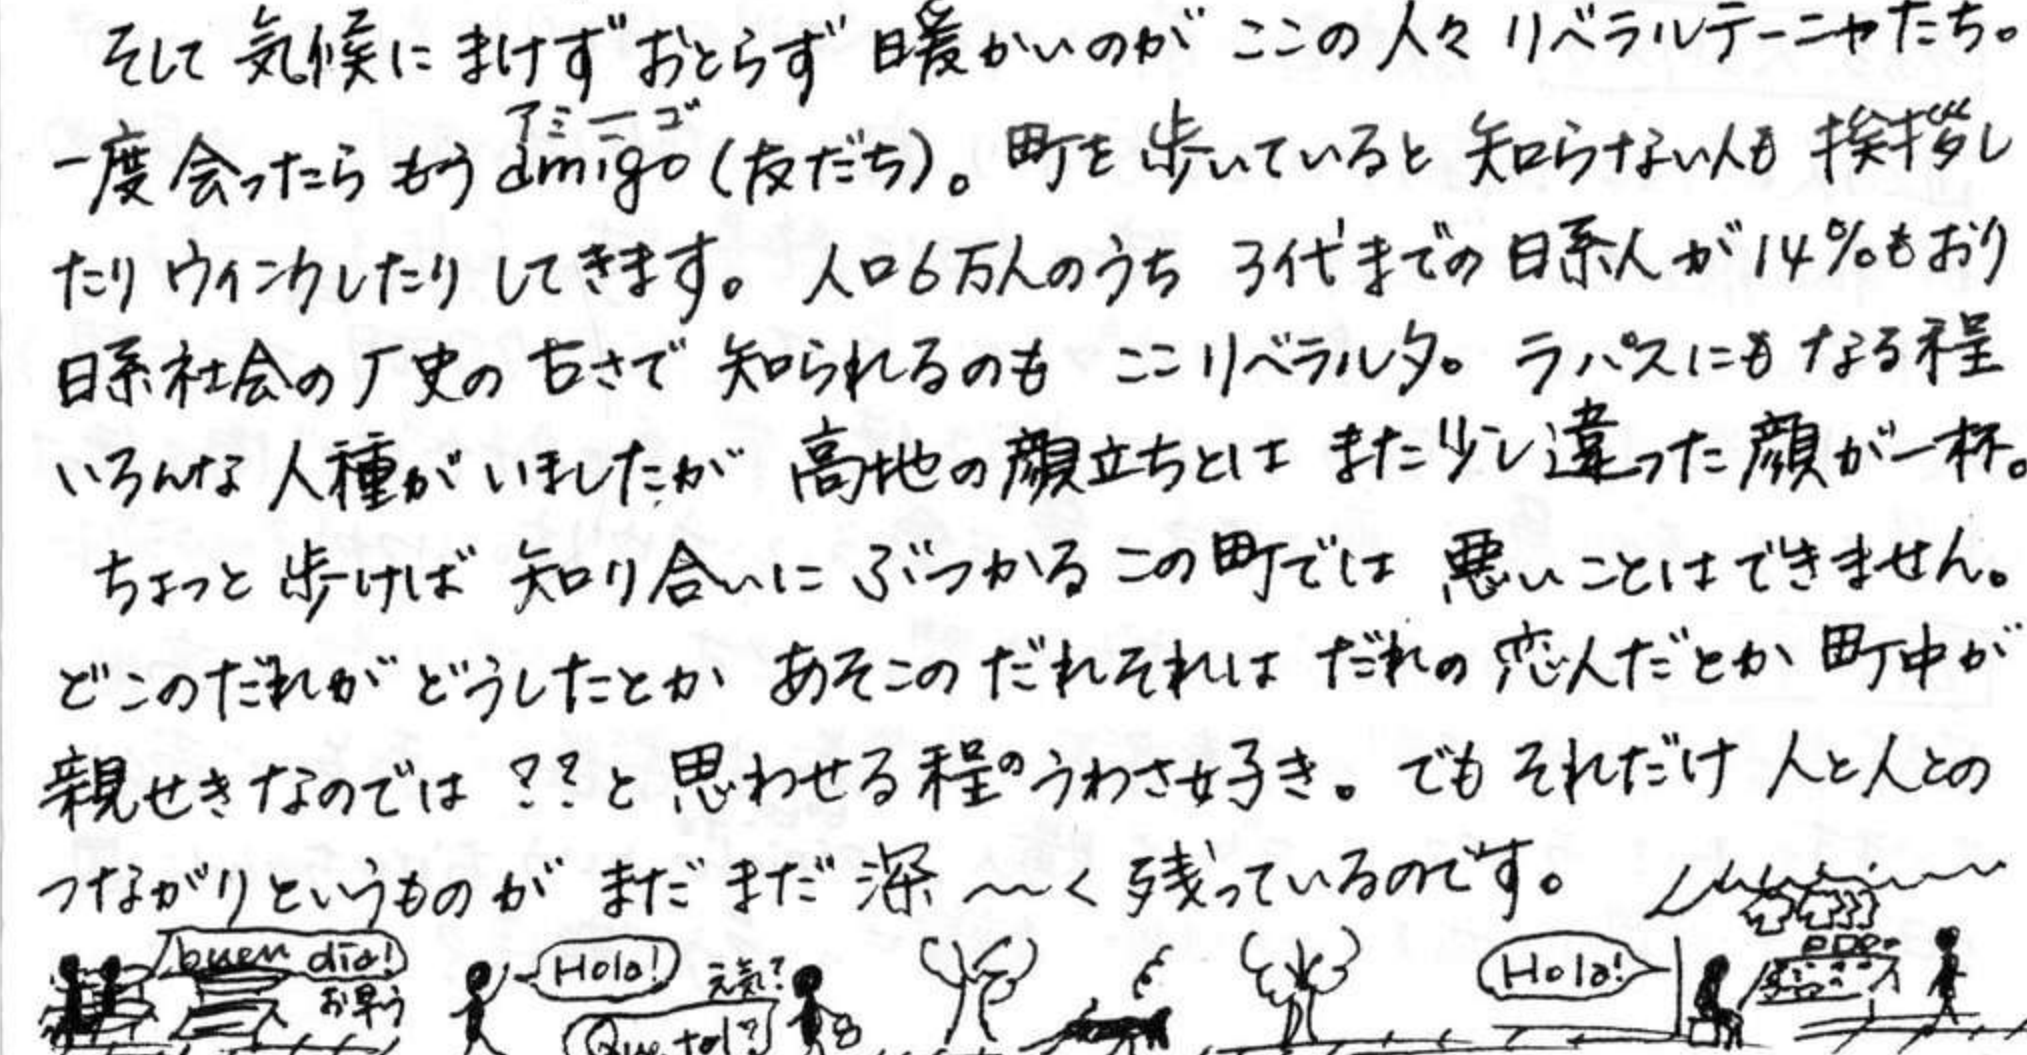 そして 気候に まけず おとらず 暖かいのが ここの 人々 リベラルテーニャたち。
アミーゴ
一度 会ったら もう amigo (友だち)。 町を 歩いていると 知らない人も 挨拶し
たり ウィンクしたり してきます。 人口6万人のうち 3代までの 日系人が 14%もおり
日系社会の 厂史の 古さで 知られるのも ここリベラルタ。 ラパスにも なる程
いろんな 人種が いましたが 高地の 顔立ちとは また少し違った 顔が一杯。
ちょっと 歩けば 知り合いに ぶつかる この町では 悪いことはできません。
どこのだれが どうしたとか あそこの だれそれは だれの 恋人だとか 町中が
親せきなのでは ??と 思わせる 程の うわさ好き。 でも それだけ 人と人との
つながりというものが まだまだ 深〜〜く 残っているのです。
buen día!
お早う
Hola!
元気?
Que tal?
Hola!